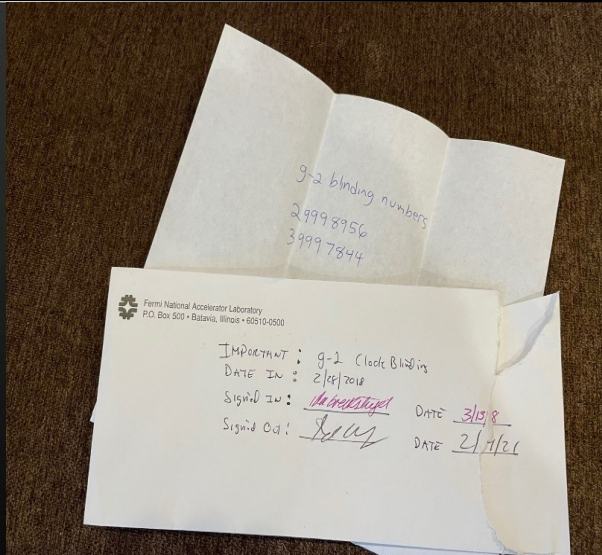 g-2 blinding numbers
29998956
39997844
Fermi National Accelerator Laboratory
P.O. Box 500 • Batavia, Illinois • 60510-0500
IMPORTANT : g-2 Clock Blinding
DATE IN : 2/28/2018
Signed IN : DATE 3/13/8
Signed Out : DATE 2/ /21